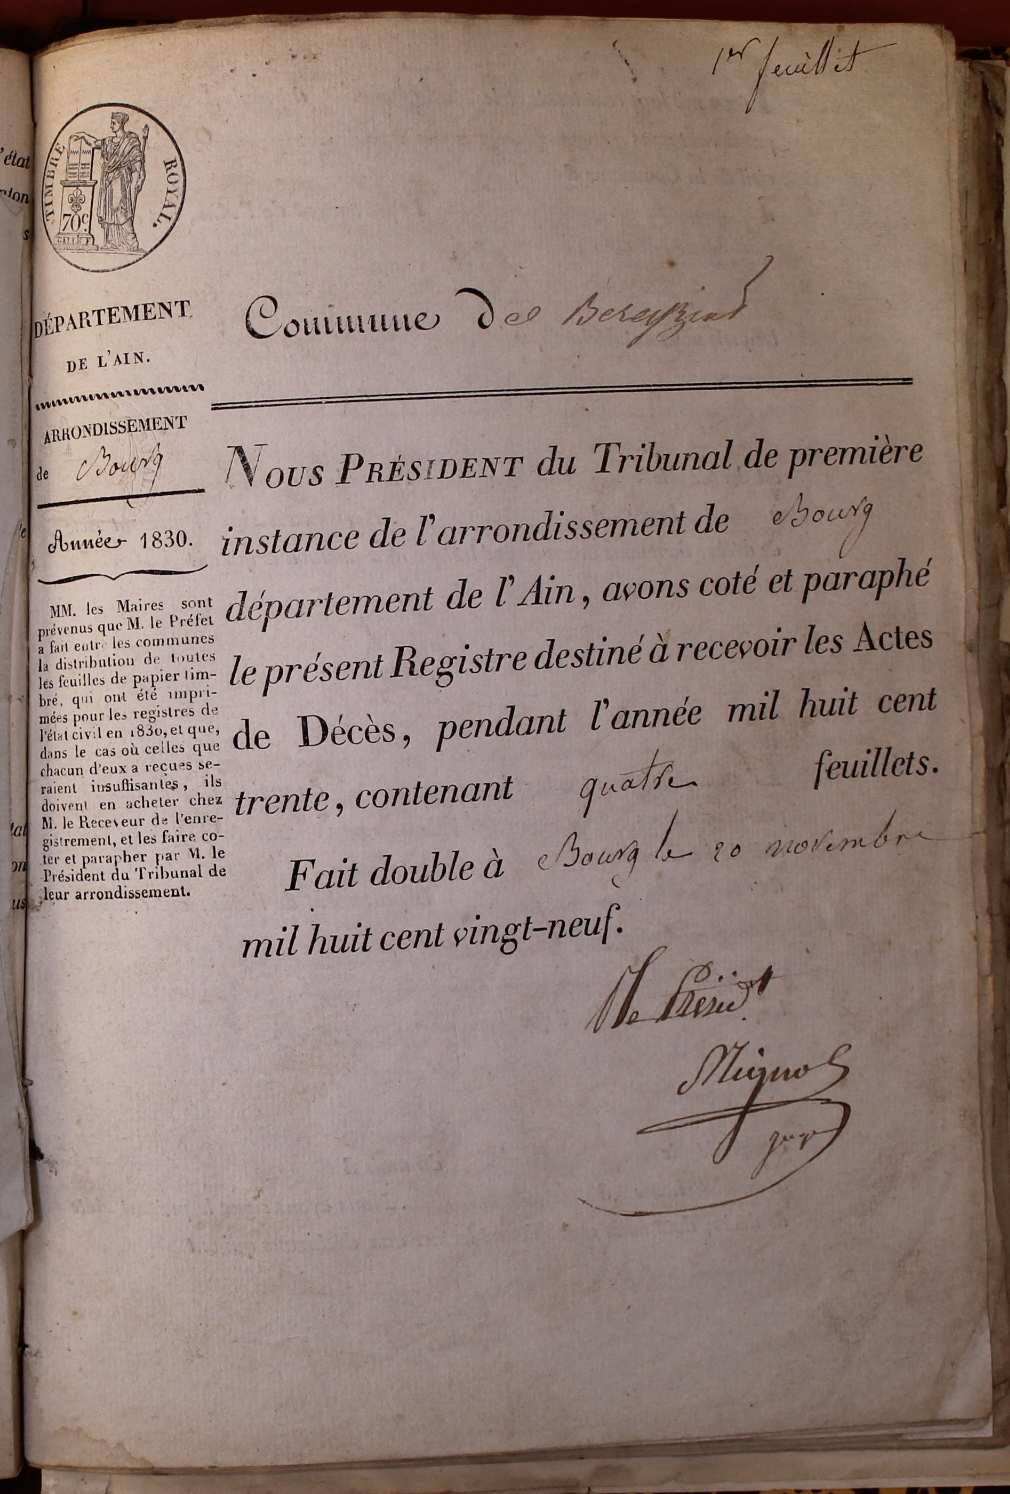 1er feuillet
TIMBRE ROYAL.
70c.
DÉPARTEMENT
DE L'AIN.
ARRONDISSEMENT
de Bourg
Année 1830.
MM. les Maires sont
prévenus que M. le Préfet
a fait entre les communes
la distribution de toutes
les feuilles de papier tim-
bré, qui ont été impri-
mées pour les registres de
l'état civil en 1830, et que,
dans le cas où celles que
chacun d'eux a reçues se-
raient insuffisantes, ils
doivent en acheter chez
M. le Receveur de l'enre-
gistrement, et les faire co-
ter et parapher par M. le
Président du Tribunal de
leur arrondissement.
Commune De Bereyziat
NOUS PRÉSIDENT du Tribunal de première
instance de l'arrondissement de Bourg
département de l'Ain, avons coté et paraphé
le présent Registre destiné à recevoir les Actes
de Décès, pendant l'année mil huit cent
trente, contenant quatre feuillets.
Fait double à Bourg le 20 novembre
mil huit cent vingt-neuf.
Le Présidt